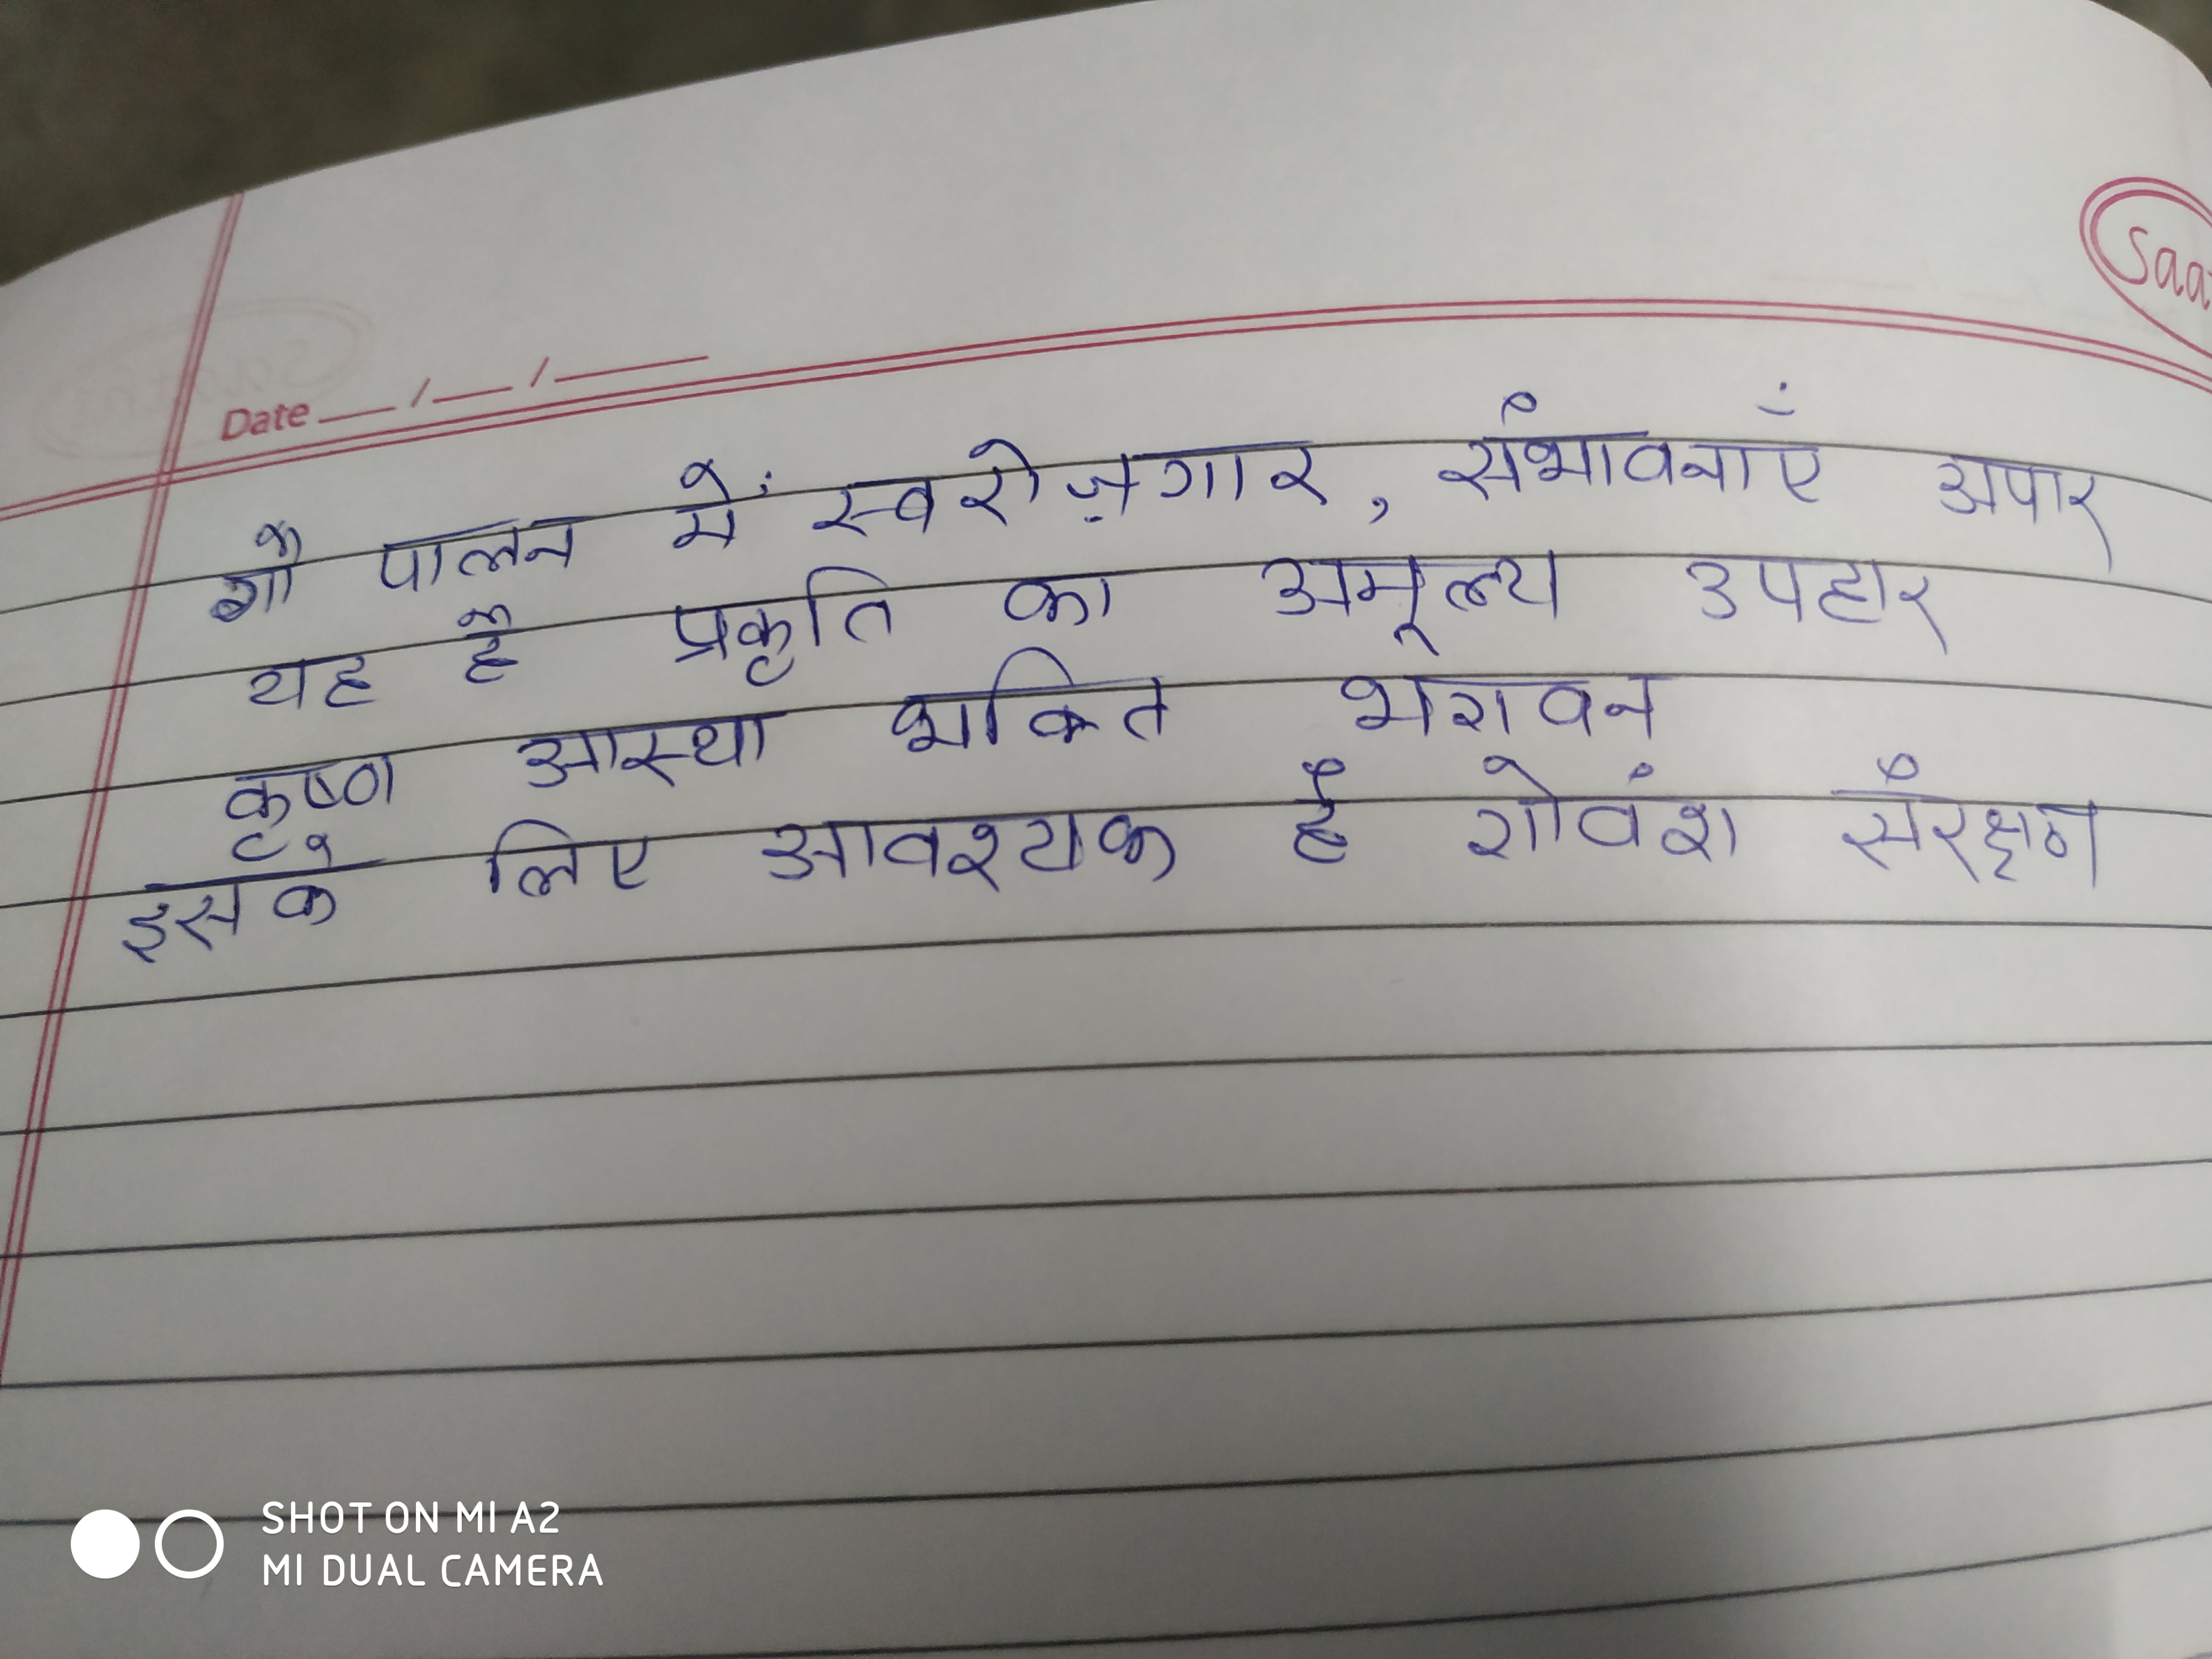 Saa
Date __/__/____
गौ पालन में स्वरोज़गार, संभावनाएं अपार
यह है प्रकृति का अमूल्य उपहार
कृष्ण आस्था भक्ति भगवन
इसके लिए आवश्यक है गोवंश संरक्षण
SHOT ON MI A2
MI DUAL CAMERA